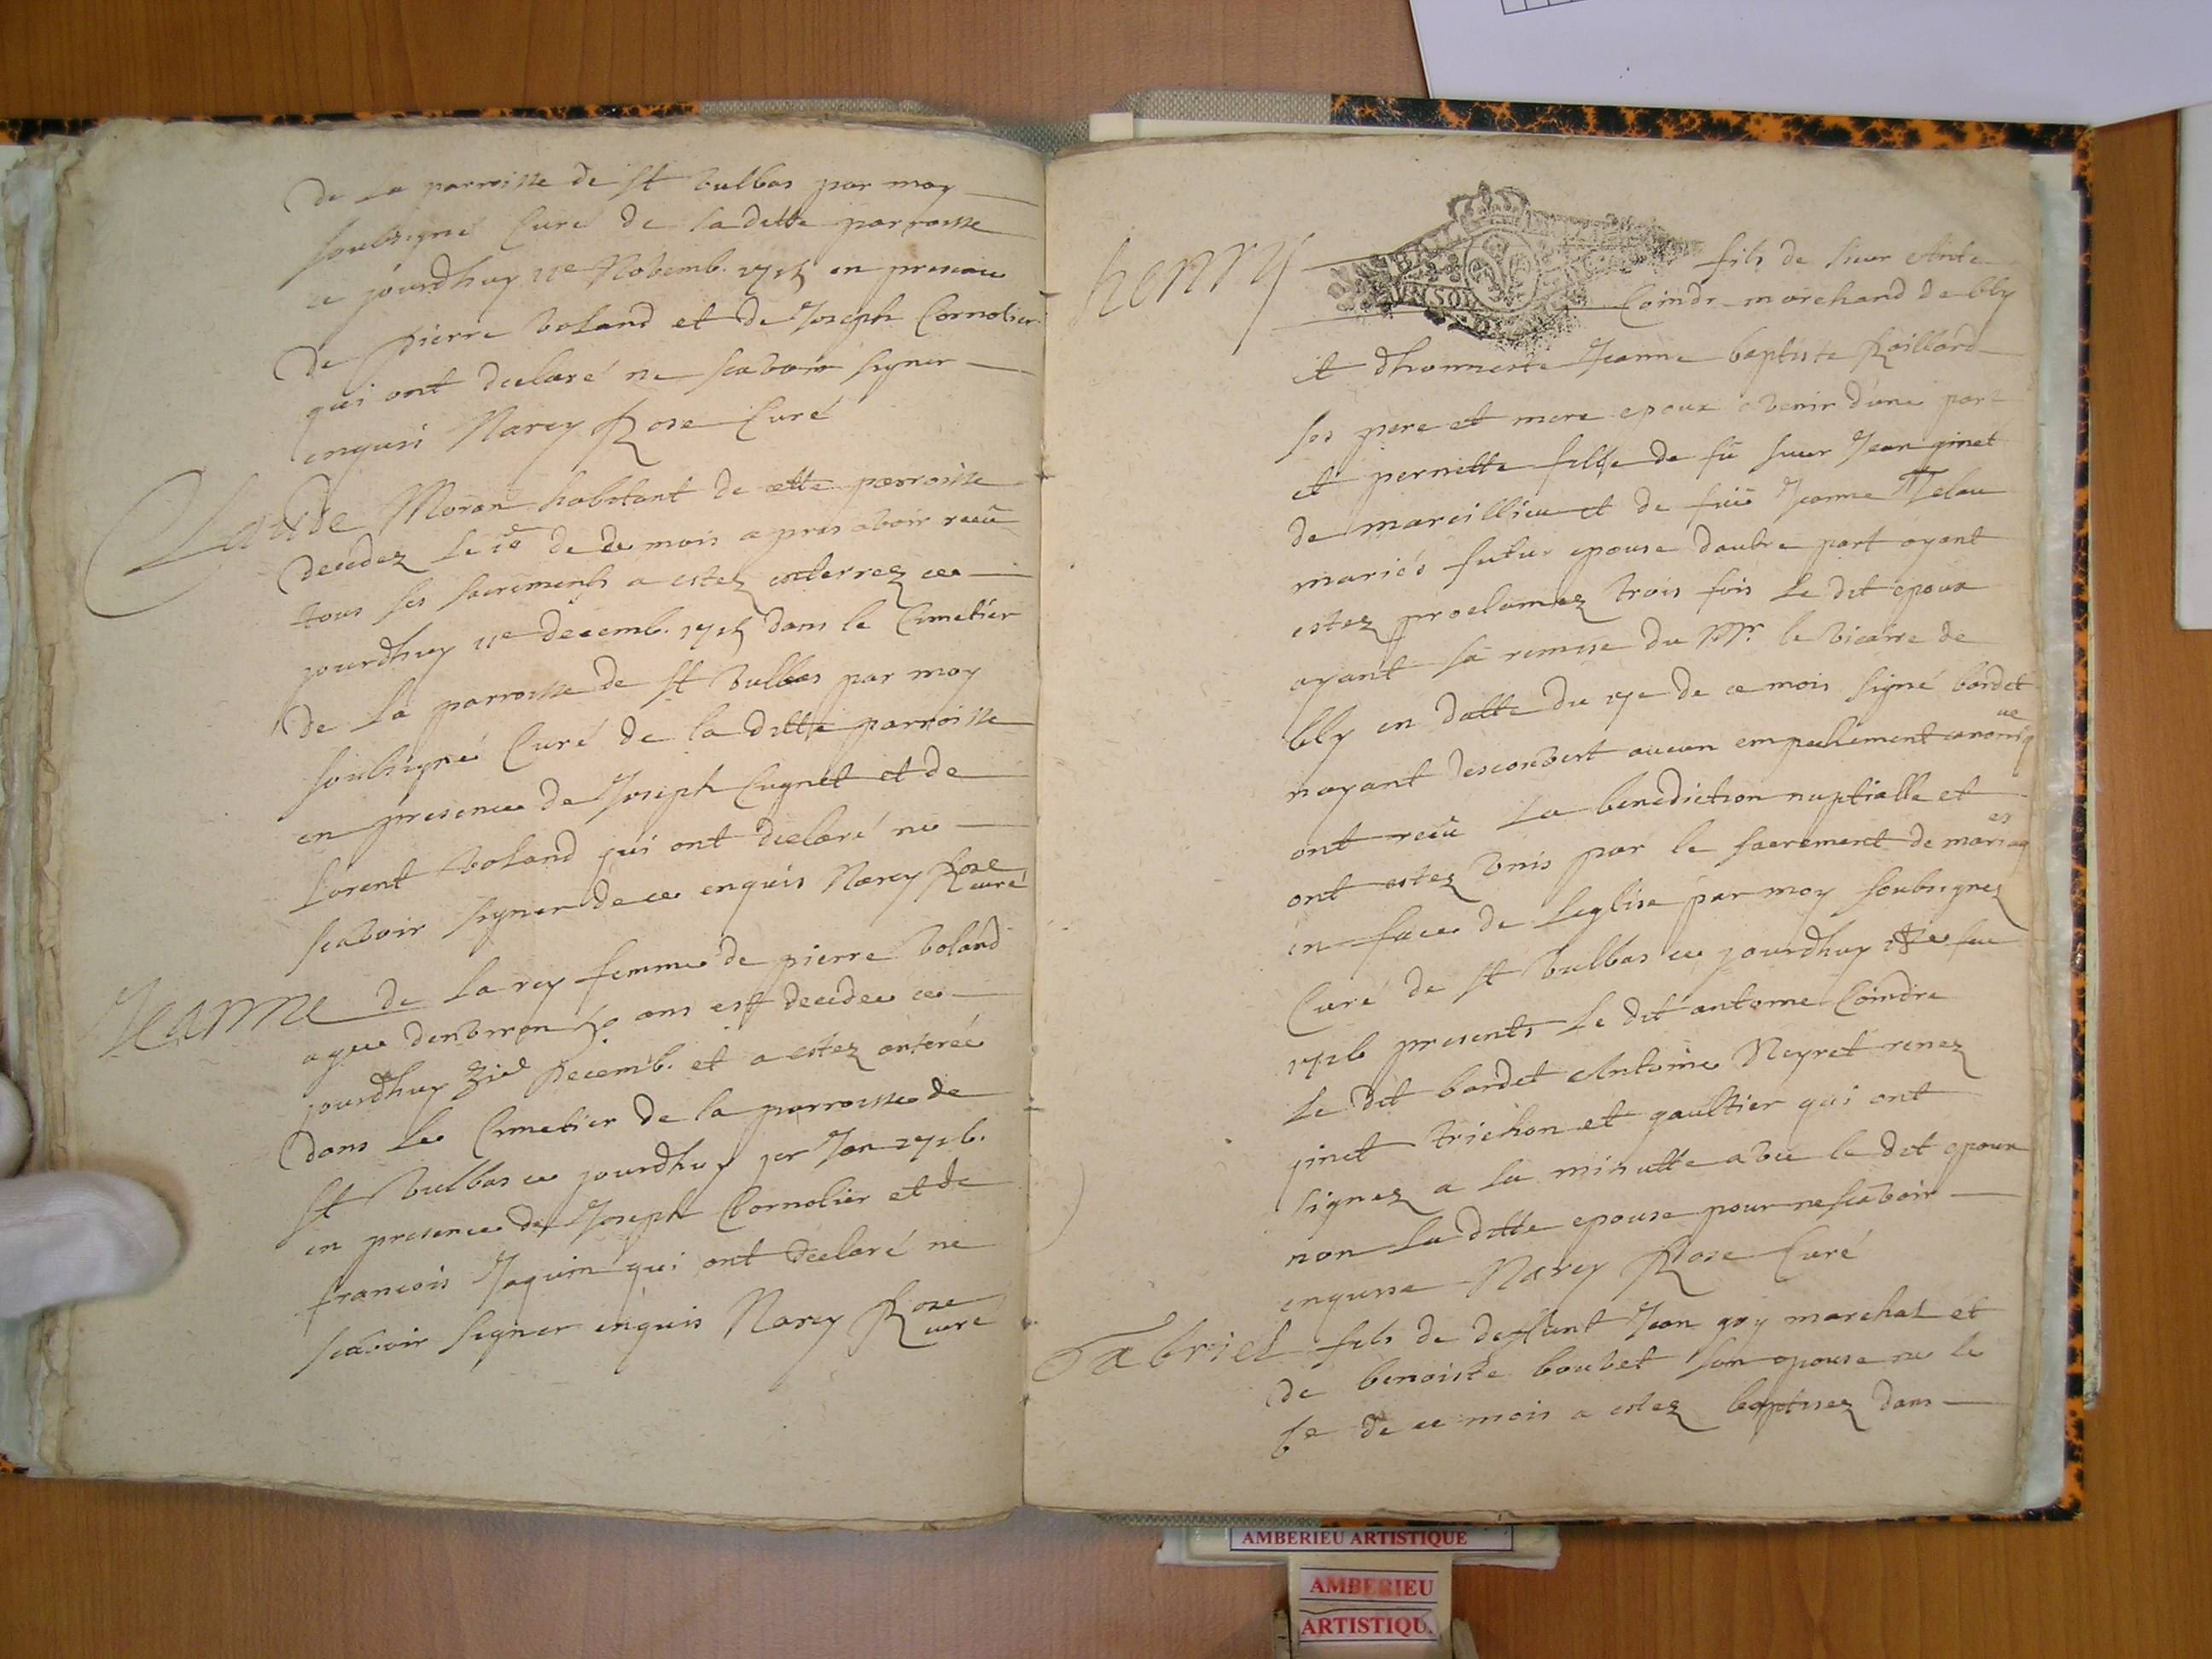 De La parroisse de St Vulbas par moy
soubsigné Curé de ladette parroisse
ce jourdhuy 11e Novemb. 1715 en presence
De pierre Voland et de Joseph Cornolier
qui ont declaré ne scavoir signer
enquis Narcy Rose Curé
Claude Moran habitant de cette parroisse
decedez le 10 de ce mois apres avoir receu
tous ses sacrements a estez enterrez ce
jourdhuy 11e decemb. 1715 dans le Cimetier
de La parroisse de St Vulbas par moy
soubsigné Curé de la ditte parroisse
en presence de Joseph Cugnet et de
Lorent Voland qui ont declaré ne
scavoir signer de ce enquis Narcy Rose
curé
Jeanne de Larcy femme de pierre Voland
agee denviron 50 ans est decedee ce
jourdhuy 31e Decemb. et a estez enterée
dans Le Cimetier de la parroisse de
St Vulbas ce jourdhuy 1er Jan 1716.
en presence de Joseph Cornolier et de
francois Jaquin qui ont declaré ne
scavoir signer enquis Narcy Rose
curé
henry fils de sieur Ante
Coindr marchand de bly
et dhonneste Jeanne baptiste Raillard
ses pere et mere epoux avenir dune part
et pernette fille de fu sieur Jean ginet
de marcillieu et de fuë Jeanne
mariés futur epouse daubre part ayant
estez proclamez trois fois Le dit epoux
ayant sa remise du Mr. le Vicaire de
bly en datte du 17e de ce mois signé bardet
nayant descouvert aucun empechement canoniq
ue
ont receu La benediction nuptialle et
ont estez Unis par le sacrement de mariag
es
en face de Leglise par moy soubsignez
Curé de St Vulbas ce jourdhuy
1716 presents Le dit antoine Coindre
Le dit bardet Antoine Neyret renez
ginet trichon et gaultier qui ont
signez a la minutte avec le dit epoux
non La ditte epouse pour ne scavoir
enquise Narcy Rose Curé
Gabriel fils de deffunt Jean guy marchal et
de benoiste bouvet son epouse ne le
6e de ce mois a estez baptisez dans
AMBERIEU ARTISTIQUE
AMBERIEU
ARTISTIQU